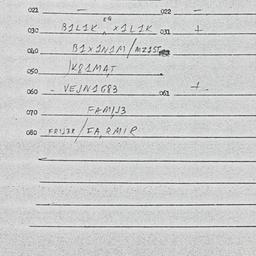 021 - 022 -
030 B1L1K x1L1K 031 +
040 B1x1N1M/MZ1ST
050 )K81MAT
060 - VEJN1G83 061 +
070 FAMJ3
080 FRJ3R/FA,RMIR